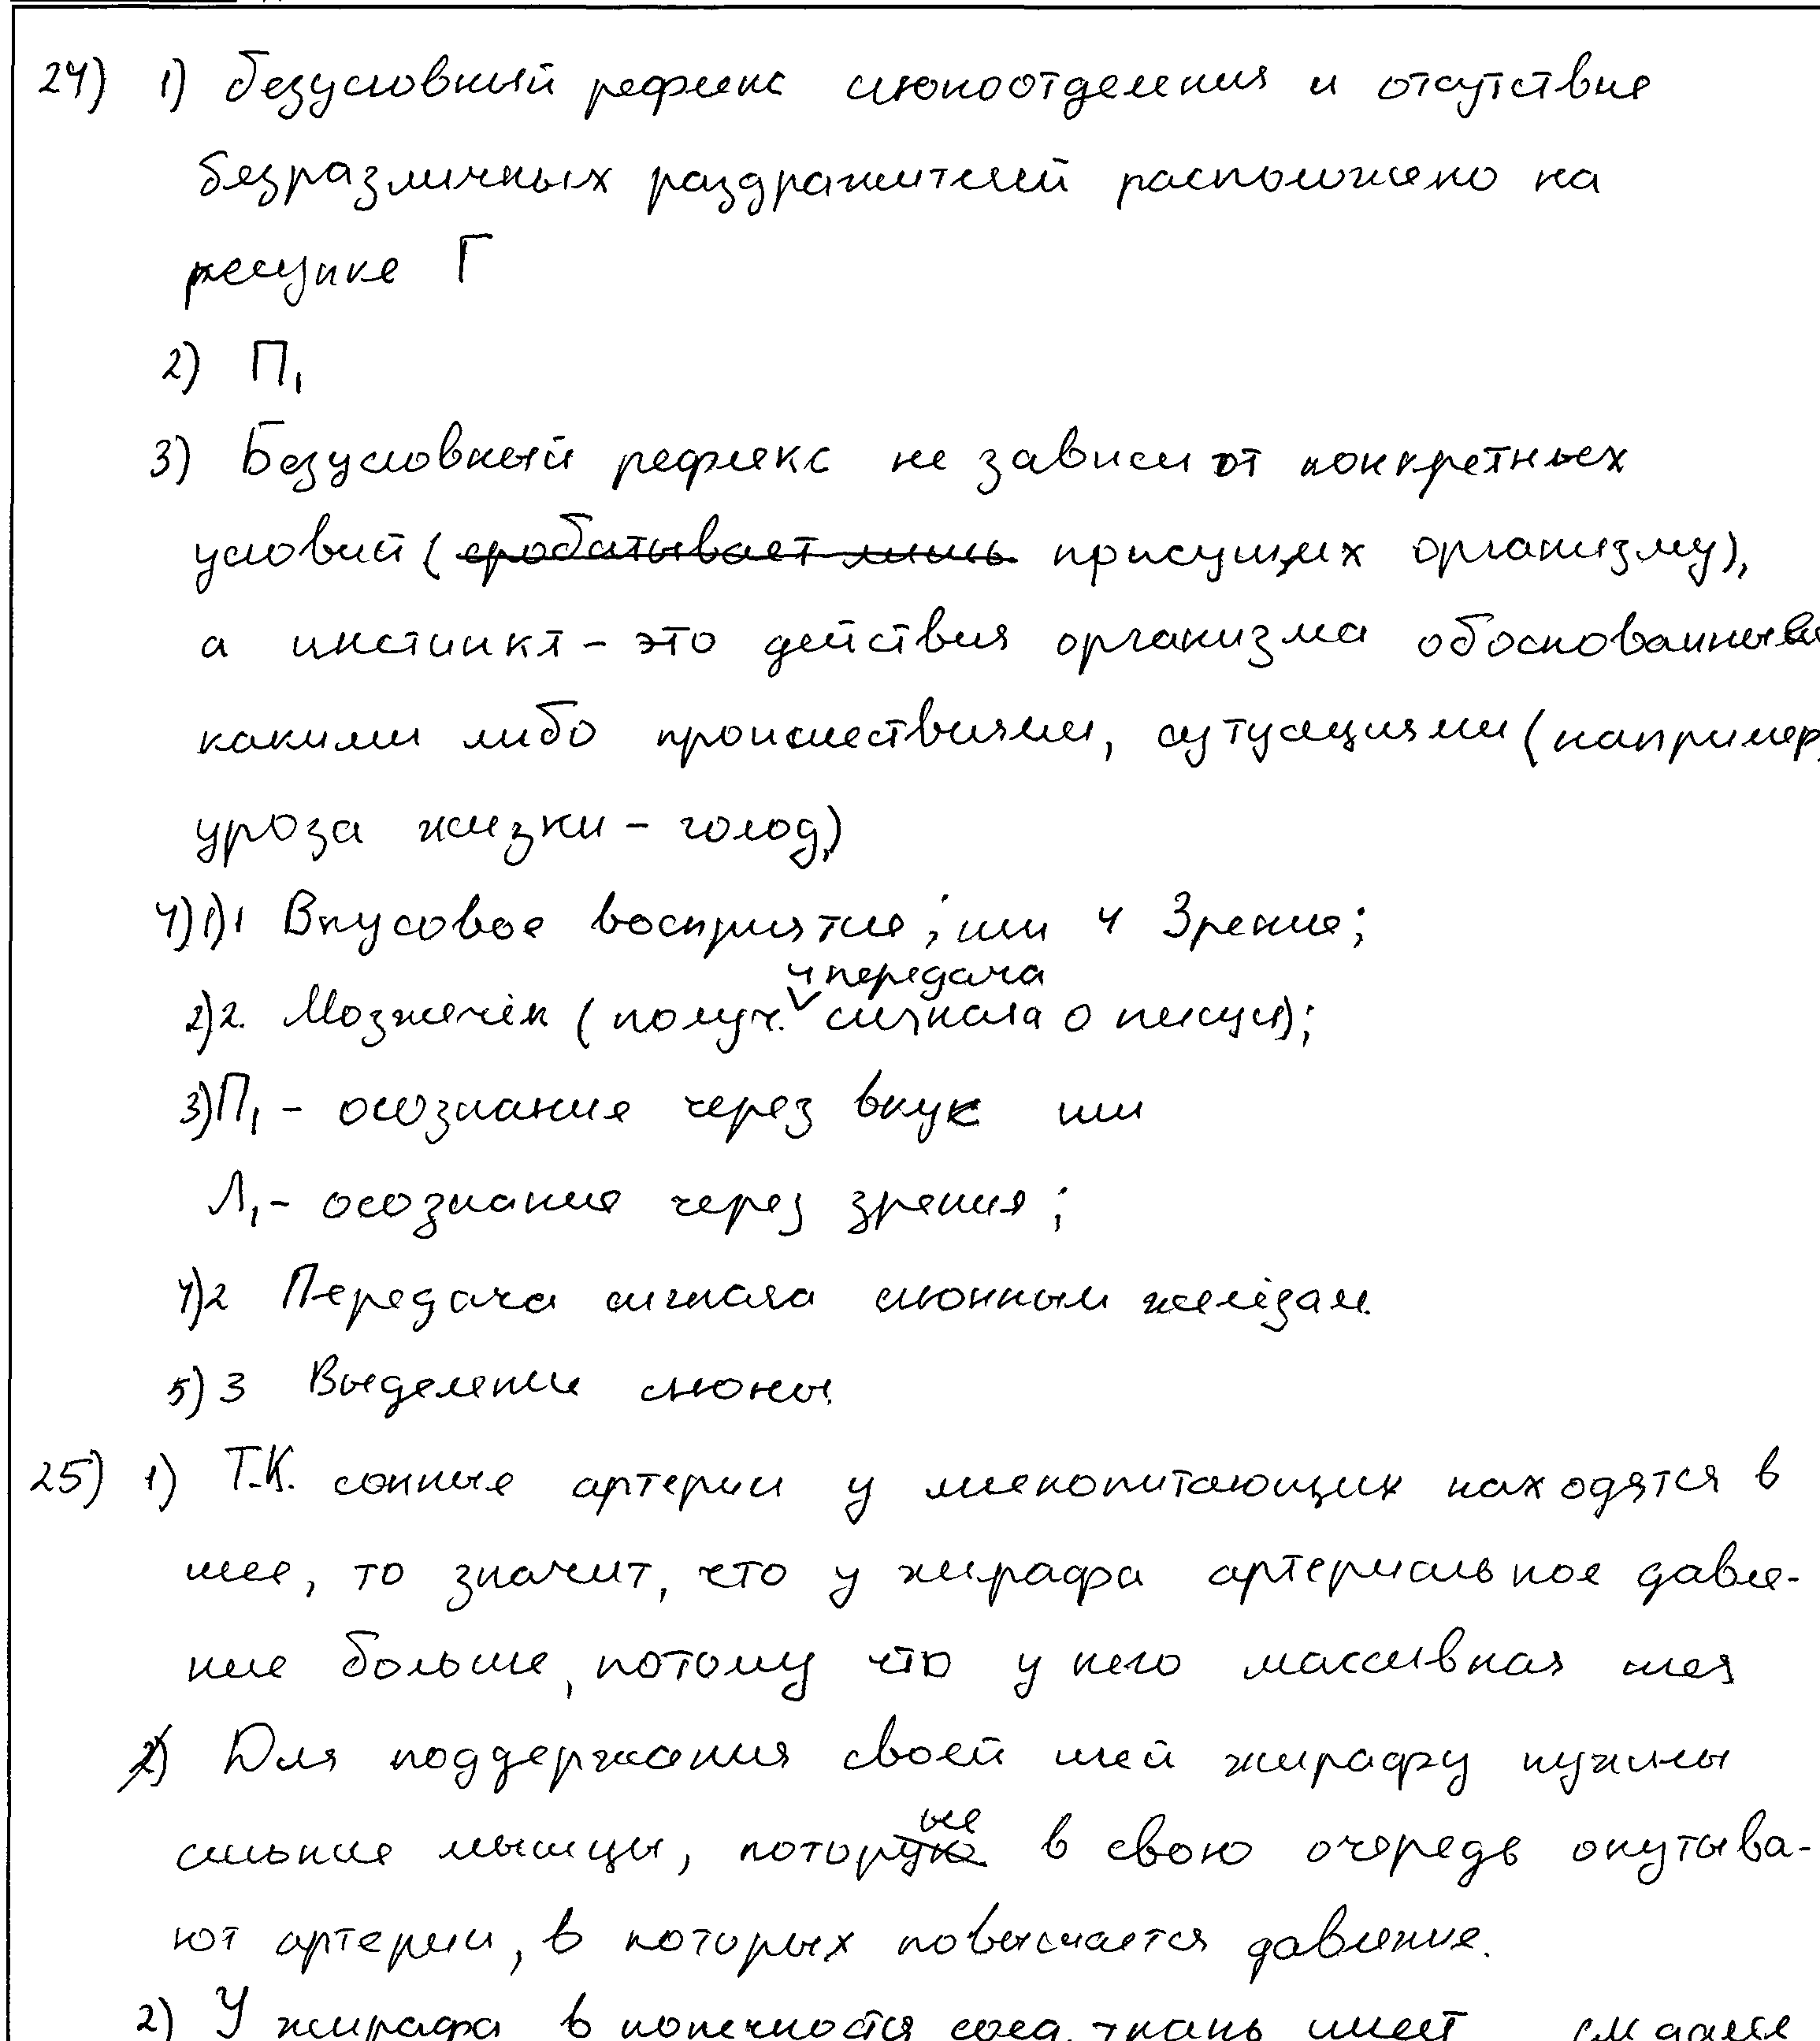 24) 1) безусловный рефлекс слюноотделения и отсутствие
безразличных раздражителей расположено на
рисунке Г
2) П₁
3) Безусловный рефлекс не зависи от конкретных
условий (срабатывает лишь присущих организму),
а инстинкт - это действия организма обоснованные
какими либо происшествиями, сутуациями (например,
угроза жизни - голод)
4) 1) 1 Вкусовое восприятие; или 4 Зрение;
2) 2. Мозжечёк (получ. и передача сигнала о пищи);
3) П₁ - осознание через вкус или
Л₁ - осознание через зрения;
4) 2 Передача сигнала слюнным желёзам.
5) 3 Выделение слюны.
25) 1) Т.К. сонные артерии у млекопитающих находятся в
шее, то значит, что у жирафа артериальное давле-
ние больше, потому что у него массивная шея
2) Для поддержания своей шей жирафу нужны
сильние мышцы, которые в свою очередь окутыва-
ют артерии, в которых повышается давление.
2) У жирафа в конечностя соед. ткань имеет